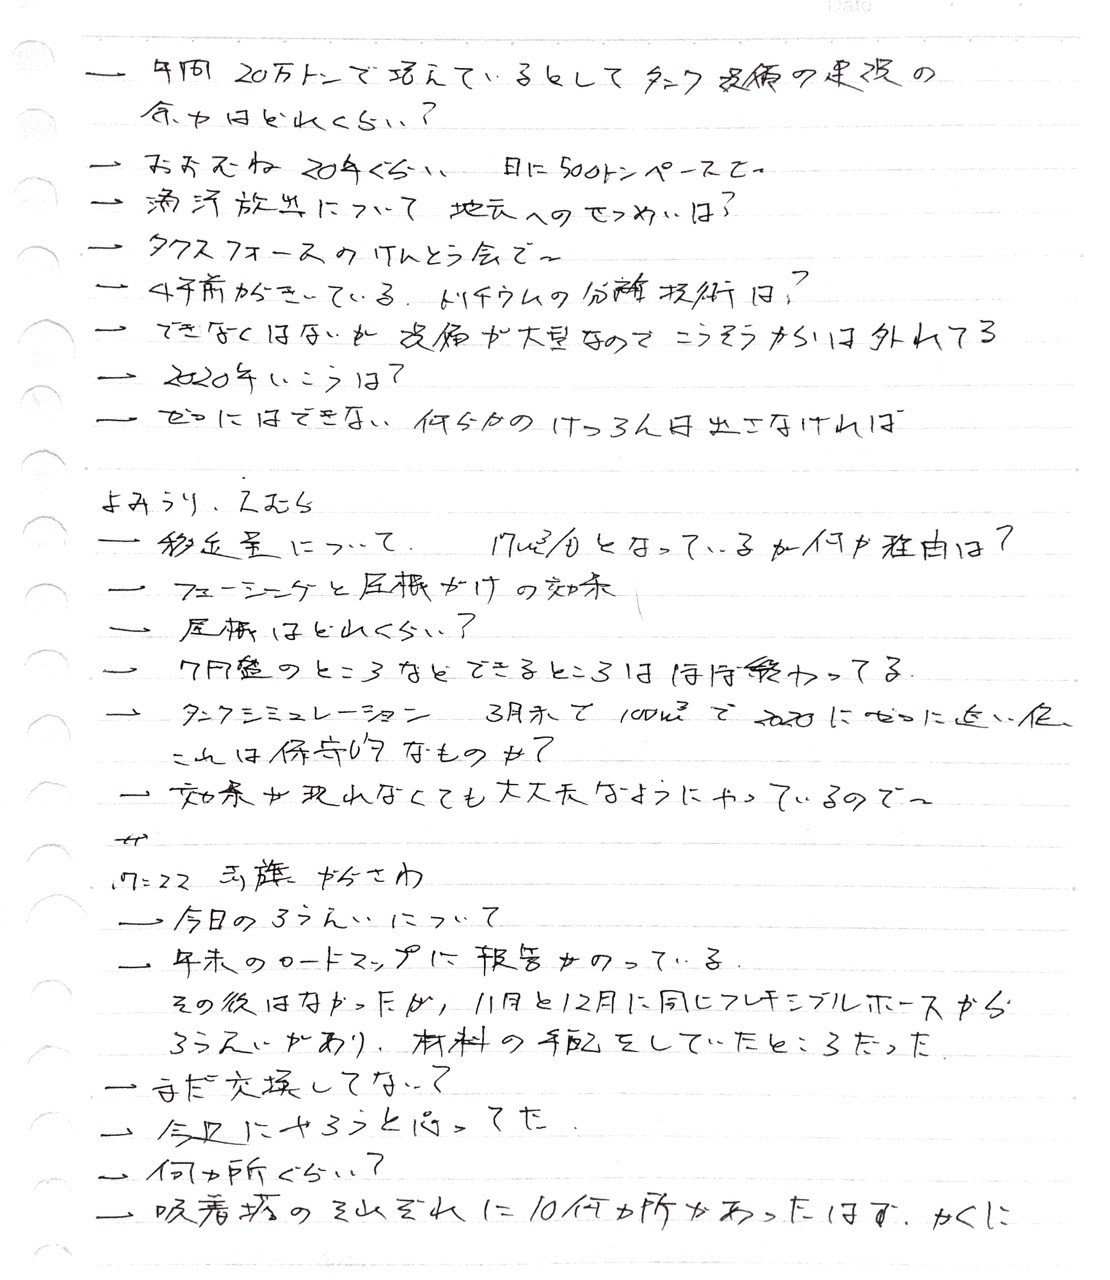 Date
— 年間 20万トンで増えているとして タンク 設備の建設の
余力はどれくらい?
— おおむね 20年ぐらい 日に500トンペースで〜
— 海洋放出について 地元へのせつめいは?
— タクスフォースのけんとう会で〜
— 4年前からきいている. トリチウムの分離技術は?
— できなくはないが 設備が大型なので こうそうからは外れてる
— 2020年いこうは?
— ゼロにはできない 何らかの けつろんは出さなければ
よみうり. えむら
— 移送量について. 17m3/日となっているが何か理由は?
— フェーシングと屋根がけの効果
— 屋根はどれくらい?
— 7円盤のところなどできるところはほぼ終わってる.
— タンクシミュレーション 3月末で 100m3で 2020にゼロに近い値、
これは保守的なものか?
— 効果が現れなくても大丈夫なようにやっているので〜
17:22 赤旗 からさわ
— 今日のろうえいについて
— 年末のロードマップに報告がのっている.
その後はなかったが, 11月と12月に同じフレキシブルホースから
ろうえいがあり. 材料の手配をしていたところだった.
— まだ交換してない?
— 今日にやろうと思ってた.
— 何か所ぐらい?
— 吸着塔のそれぞれに10何か所かあったはず. かくに